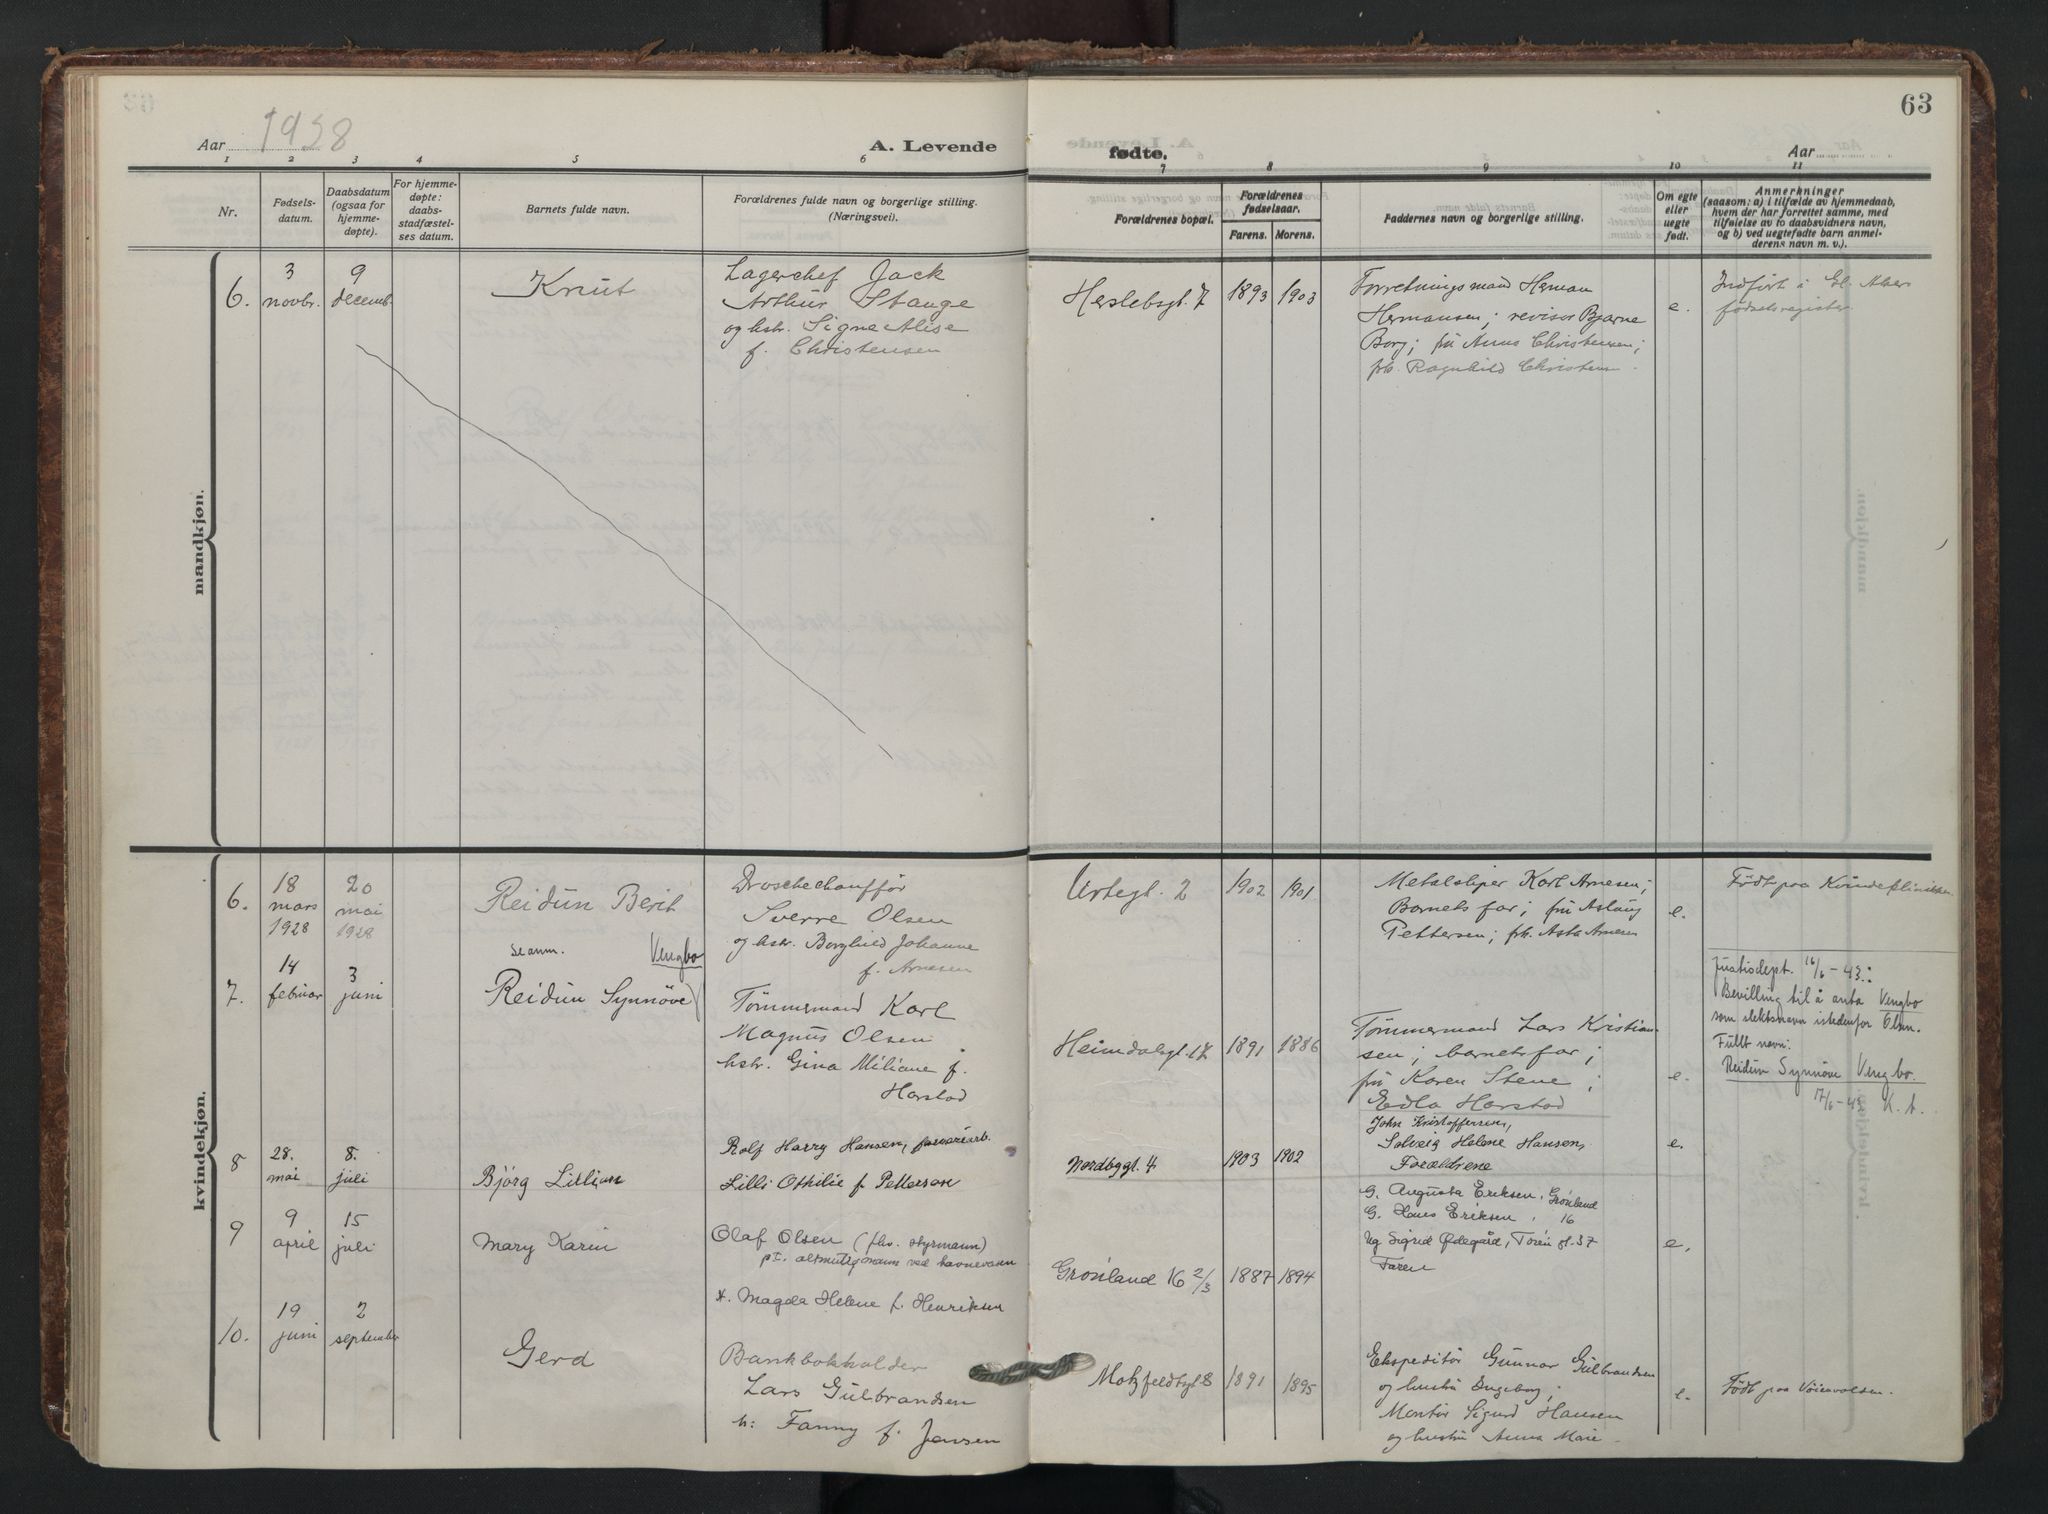 63
Aar 1928
A. Levende
fødte.
Aar
1 2 3 4 5 6 7 8 9 10 11
Nr.
Fødsels-
datum.
Daabsdatum
(ogsaa for
hjemme-
døpte).
For hjemme-
døpte:
daabs-
stadfæstel-
ses datum.
Barnets fulde navn.
Forældrenes fulde navn og borgerlige stilling.
(Næringsvei).
Forældrenes bopæl.
Forældrenes
fødselsaar.
Farens. Morens.
Faddernes navn og borgerlige stilling.
Om egte
eller
uegte
født.
Anmerkninger
(saasom: a) i tilfælde av hjemmedaab,
hvem der har forrettet samme, med
tilføielse av to daabsvidners navn,
og b) ved uegtefødte barn anmel-
derens navn m. v.).
mandkjøn.
6.
3
novbr.
9
decemb.
Knut
Lagerchef Jack
Arthur Stange
og hstr. Signe Alise
f. Christensen
Herslebsgt. 7
1893
1903
Forretningsmand Herman
Hermansen; revisor Bjarne
Borg; fru Anna Christensen;
frk. Ragnhild Christensen.
e.
Indført i Gl. Akers
fødselsregister
kvindekjøn.
6.
18
mars
1928
20
mai
1928
Reidun Berit
Droschechauffør
Sverre Olsen
og hstr. Borghild Johanne
f. Arnesen
Urtegt. 2
1902
1901
Metalsliper Karl Arnesen;
Barnets far; fru Aslaug
Pettersen; frk. Asta Arnesen
e.
Født paa Kvindeklinikken
7.
14
februar
3
juni
se anm. Vengbo
Reidun Synnöve
Tømmermand Karl
Magnus Olsen
hstr. Gina Miliane f.
Harstad
Heimdalsgt. 17
1891
1886
Tömmermand Lars Kristian-
sen; barnets far;
fru Karen Stene;
Edla Harstad
e.
Justisdept. 16/6-43:
Bevilling til å anta Vengbo
som slektsnavn istedenfor Olsen.
Fullt navn:
Reidun Synnöve Vengbo.
17/6-43 K. A.
8
28.
mai
8.
juli
Björg Lillian
Rolf Harry Hansen, farveriarb.
Lilli Othilie f. Petterson
Nordbygt. 4
1903
1902
John Kristoffersen,
Solveig Helene Hansen,
Forældrene
e.
9
9
april
15
juli
Mary Karin
Olaf Olsen (fhv. styrmann)
p.t. altmuligmann ved havnevæsen
H. Magda Helene f. Henriksen
Grønland 16 2/3
1887
1894
G. Augusta Eriksen, Grönland
G. Hans Eriksen, 16
Ug Sigrid Ødegård, Töien gt. 37
Faren
e.
10.
19
juni
2
september
Gerd
Bankbokholder
Lars Gulbrandsen
h: Fanny f. Jensen
Motzfeldtsgt 8
1891
1895
Ekspeditör Gunnar Gulbrandsen
og hustru Ingeborg;
Montör Sigurd Hansen
og hustru Anna Marie.
e.
Født paa Vöienvolden.